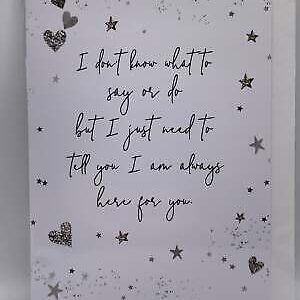 I don't know what to
say or do
but I just need to
tell you I am always
here for you.